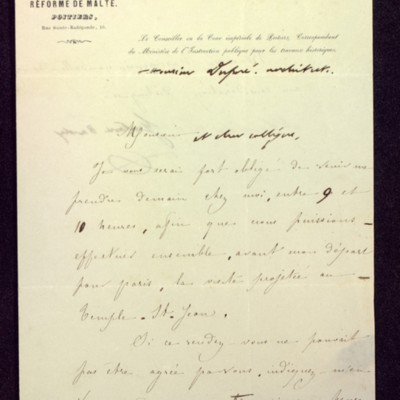 RÉFORME DE MALTE.
POITIERS,
Rue Sainte-Radégonde,
Le Conseiller en la Cour impériale de Poitiers, Correspondant
du Ministère de l'Instruction publique pour les travaux historiques,
Monsieur Dupré, architecte,
Monsieur et cher collègue,
Je vous serais fort obligé de venir me
prendre demain chez moi, entre 9 et
10 heures, afin que nous puissions
effectuer ensemble, avant mon départ
pour paris, la visite projetée au
Temple St. Jean.
Si ce rendez vous ne pouvait
pas être agréé par vous, indiquez m'en